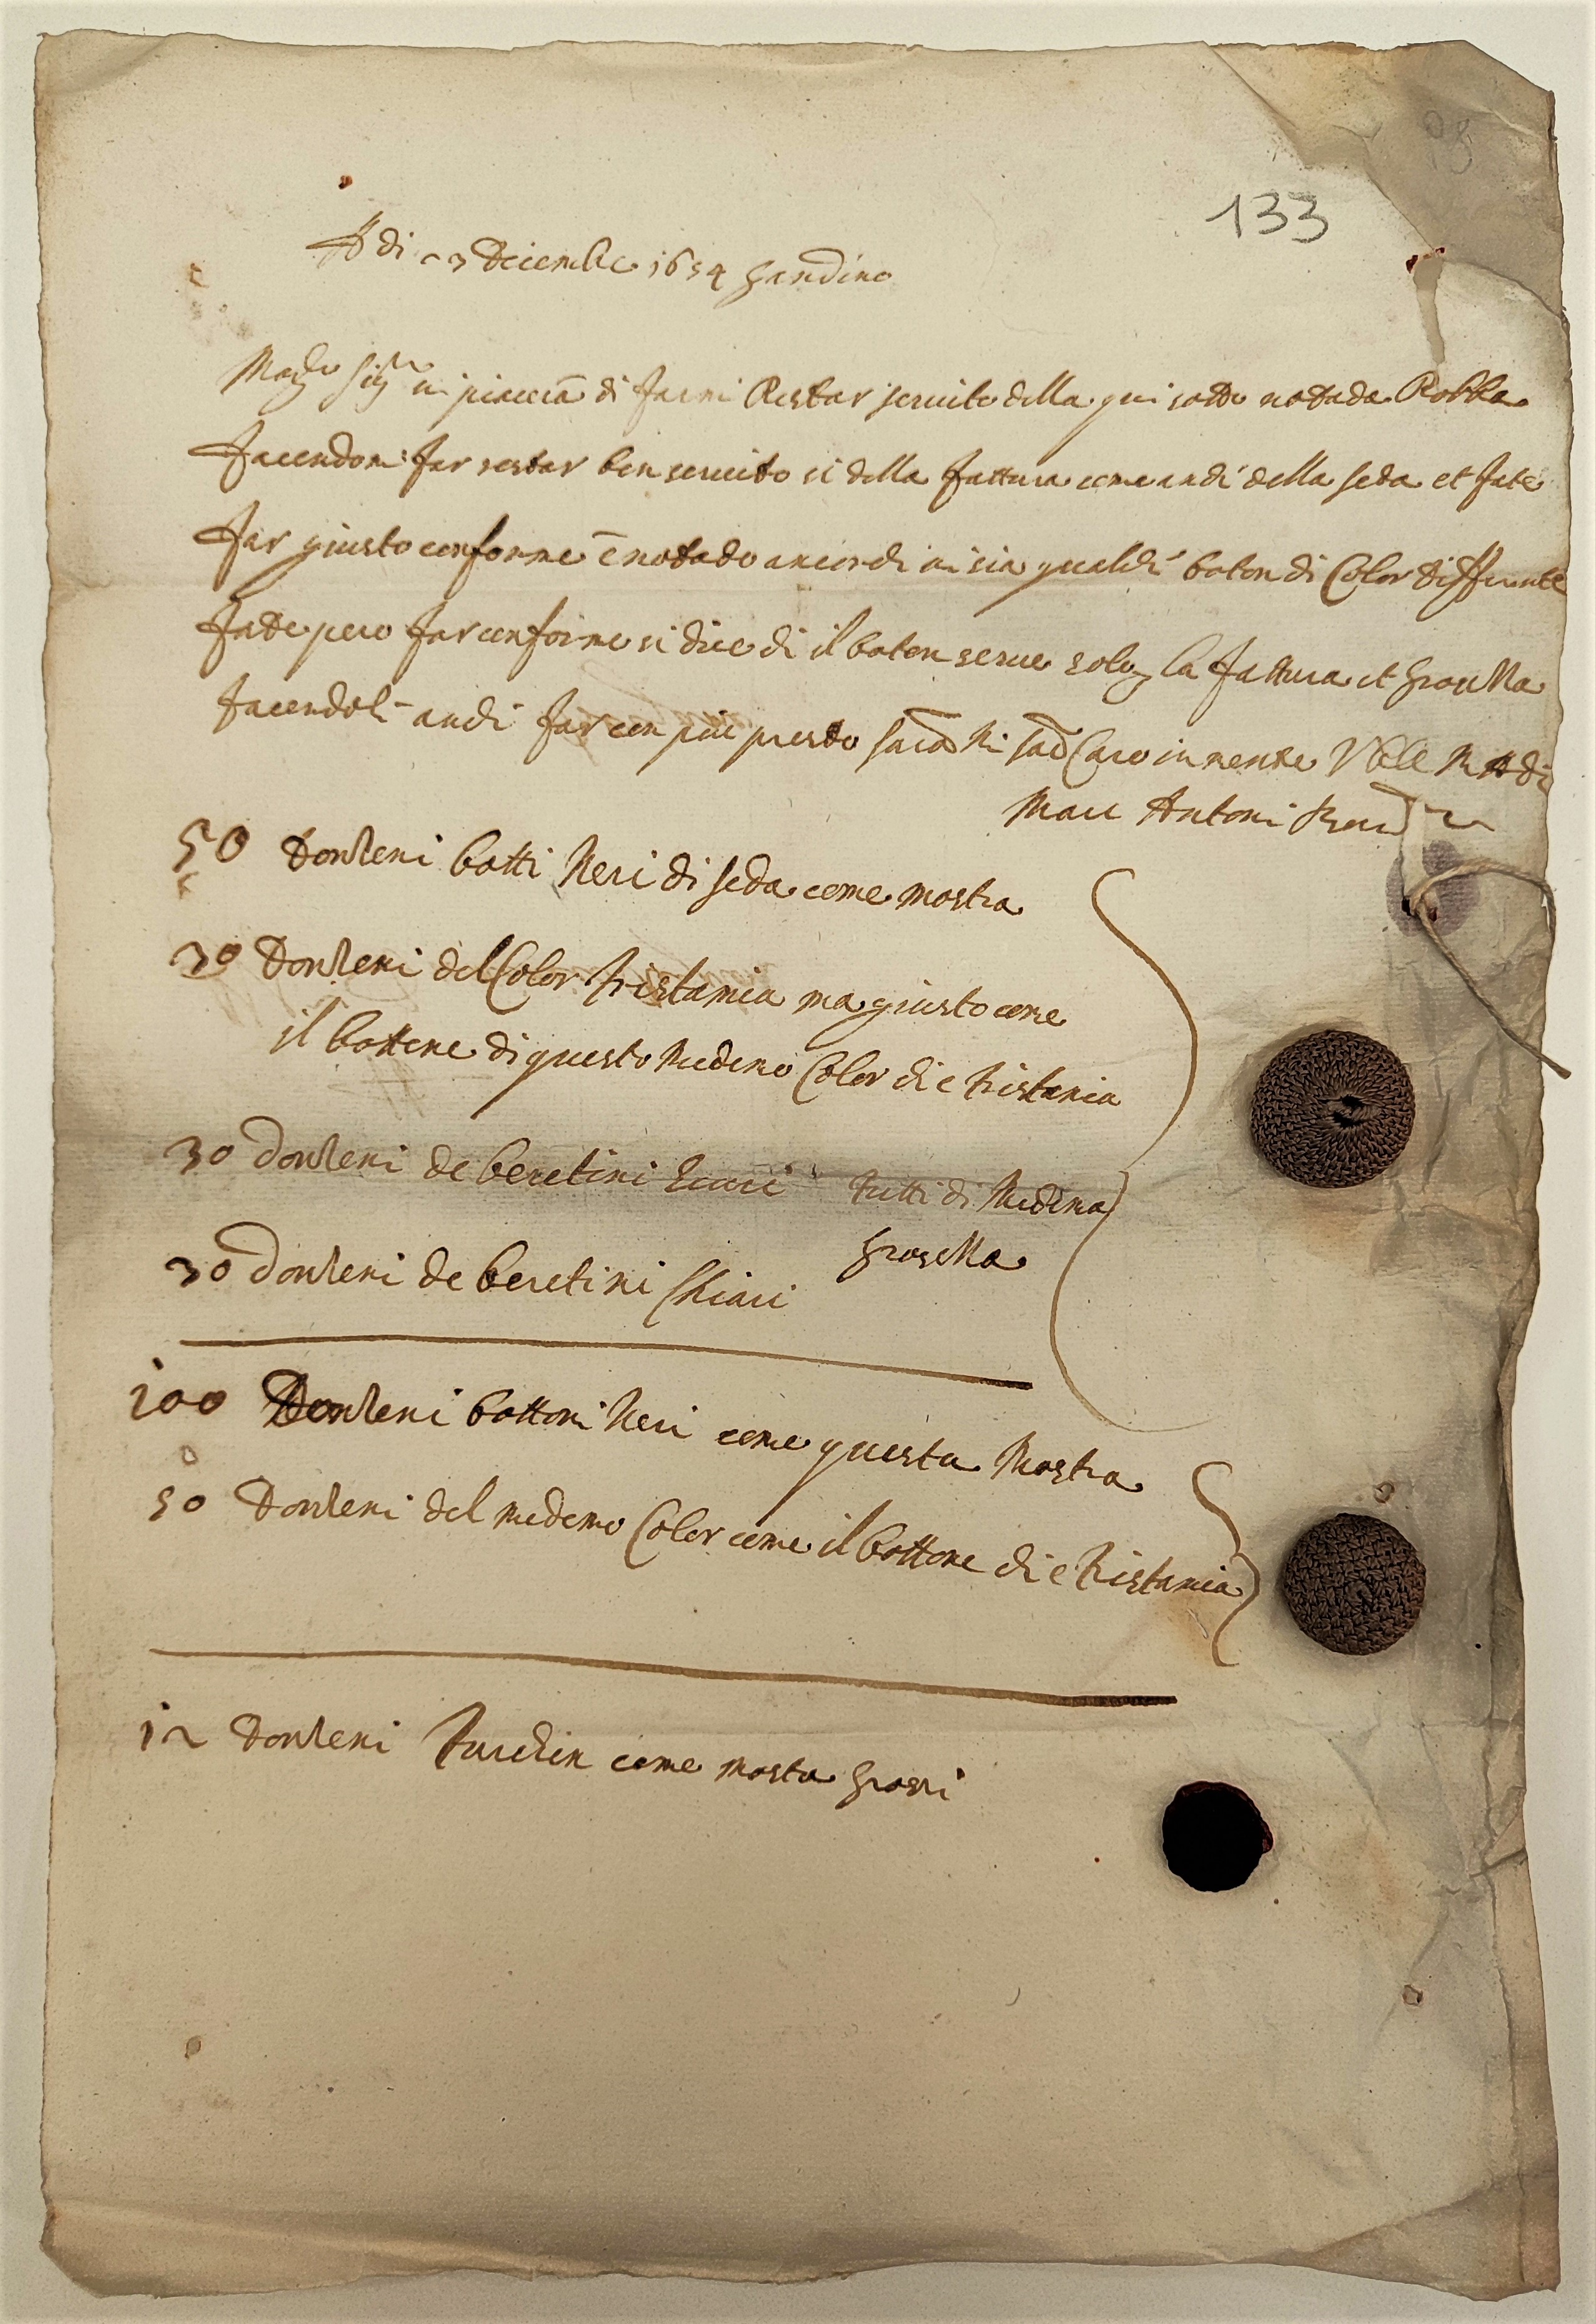 133
Adi 23 Decembre 1654 Gandino
Magco Sigr vi piacerà di farmi Restar servito della qui sotto notada Robba
facendomi far restar ben servito si della fattura come andi della seda et fate
far giusto conforme è notado ancordi vi sia qualdi boton di Color differente
fate pero far conforme si dice di il boton serve solo la fattura et
facendoli andi far con più presto Caro
Marc Antoni
50 Donzeni botti Neri di seda come mostra
30 Donzeni del Color tristamia ma giusto come
il bottone di questo medemo Color di e tristamia
30 donzeni de beretini scuri tutti di medema
grosezza
30 donzeni de beretini Chiari
100 Donzeni bottoni Neri come questa Mostra
50 Donzeni del medemo Color come il bottone di e tristamia
12 donzeni turchin come mosta grossi